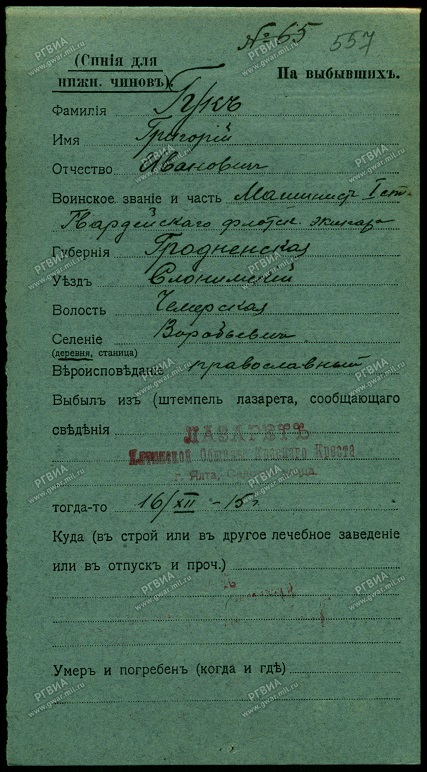 № 65 557
(Синія для
нижн. чиновъ).
На выбывшихъ.
Фамилія Гукъ
Имя Григорій
Отчество Ивановичъ
Воинское званіе и часть Машинист I ст.
Гвардейскаго флотск. экипаж
Губернія Гродненская
Уѣздъ Слонимскій
Волость Чемерская
Селеніе Воробьевичи
(деревня, станица)
Вѣроисповѣданіе православный
Выбылъ изъ (штемпель лазарета, сообщающаго
свѣдѣнія
ЛАЗАРЕТЪ
Общины Краснаго Креста
г. Ялта,
тогда-то 16/XII - 15 г.
Куда (въ строй или въ другое лечебное заведеніе
или въ отпускъ и проч.)
Умеръ и погребенъ (когда и гдѣ)
РГВИА
www.gwar.mil.ru